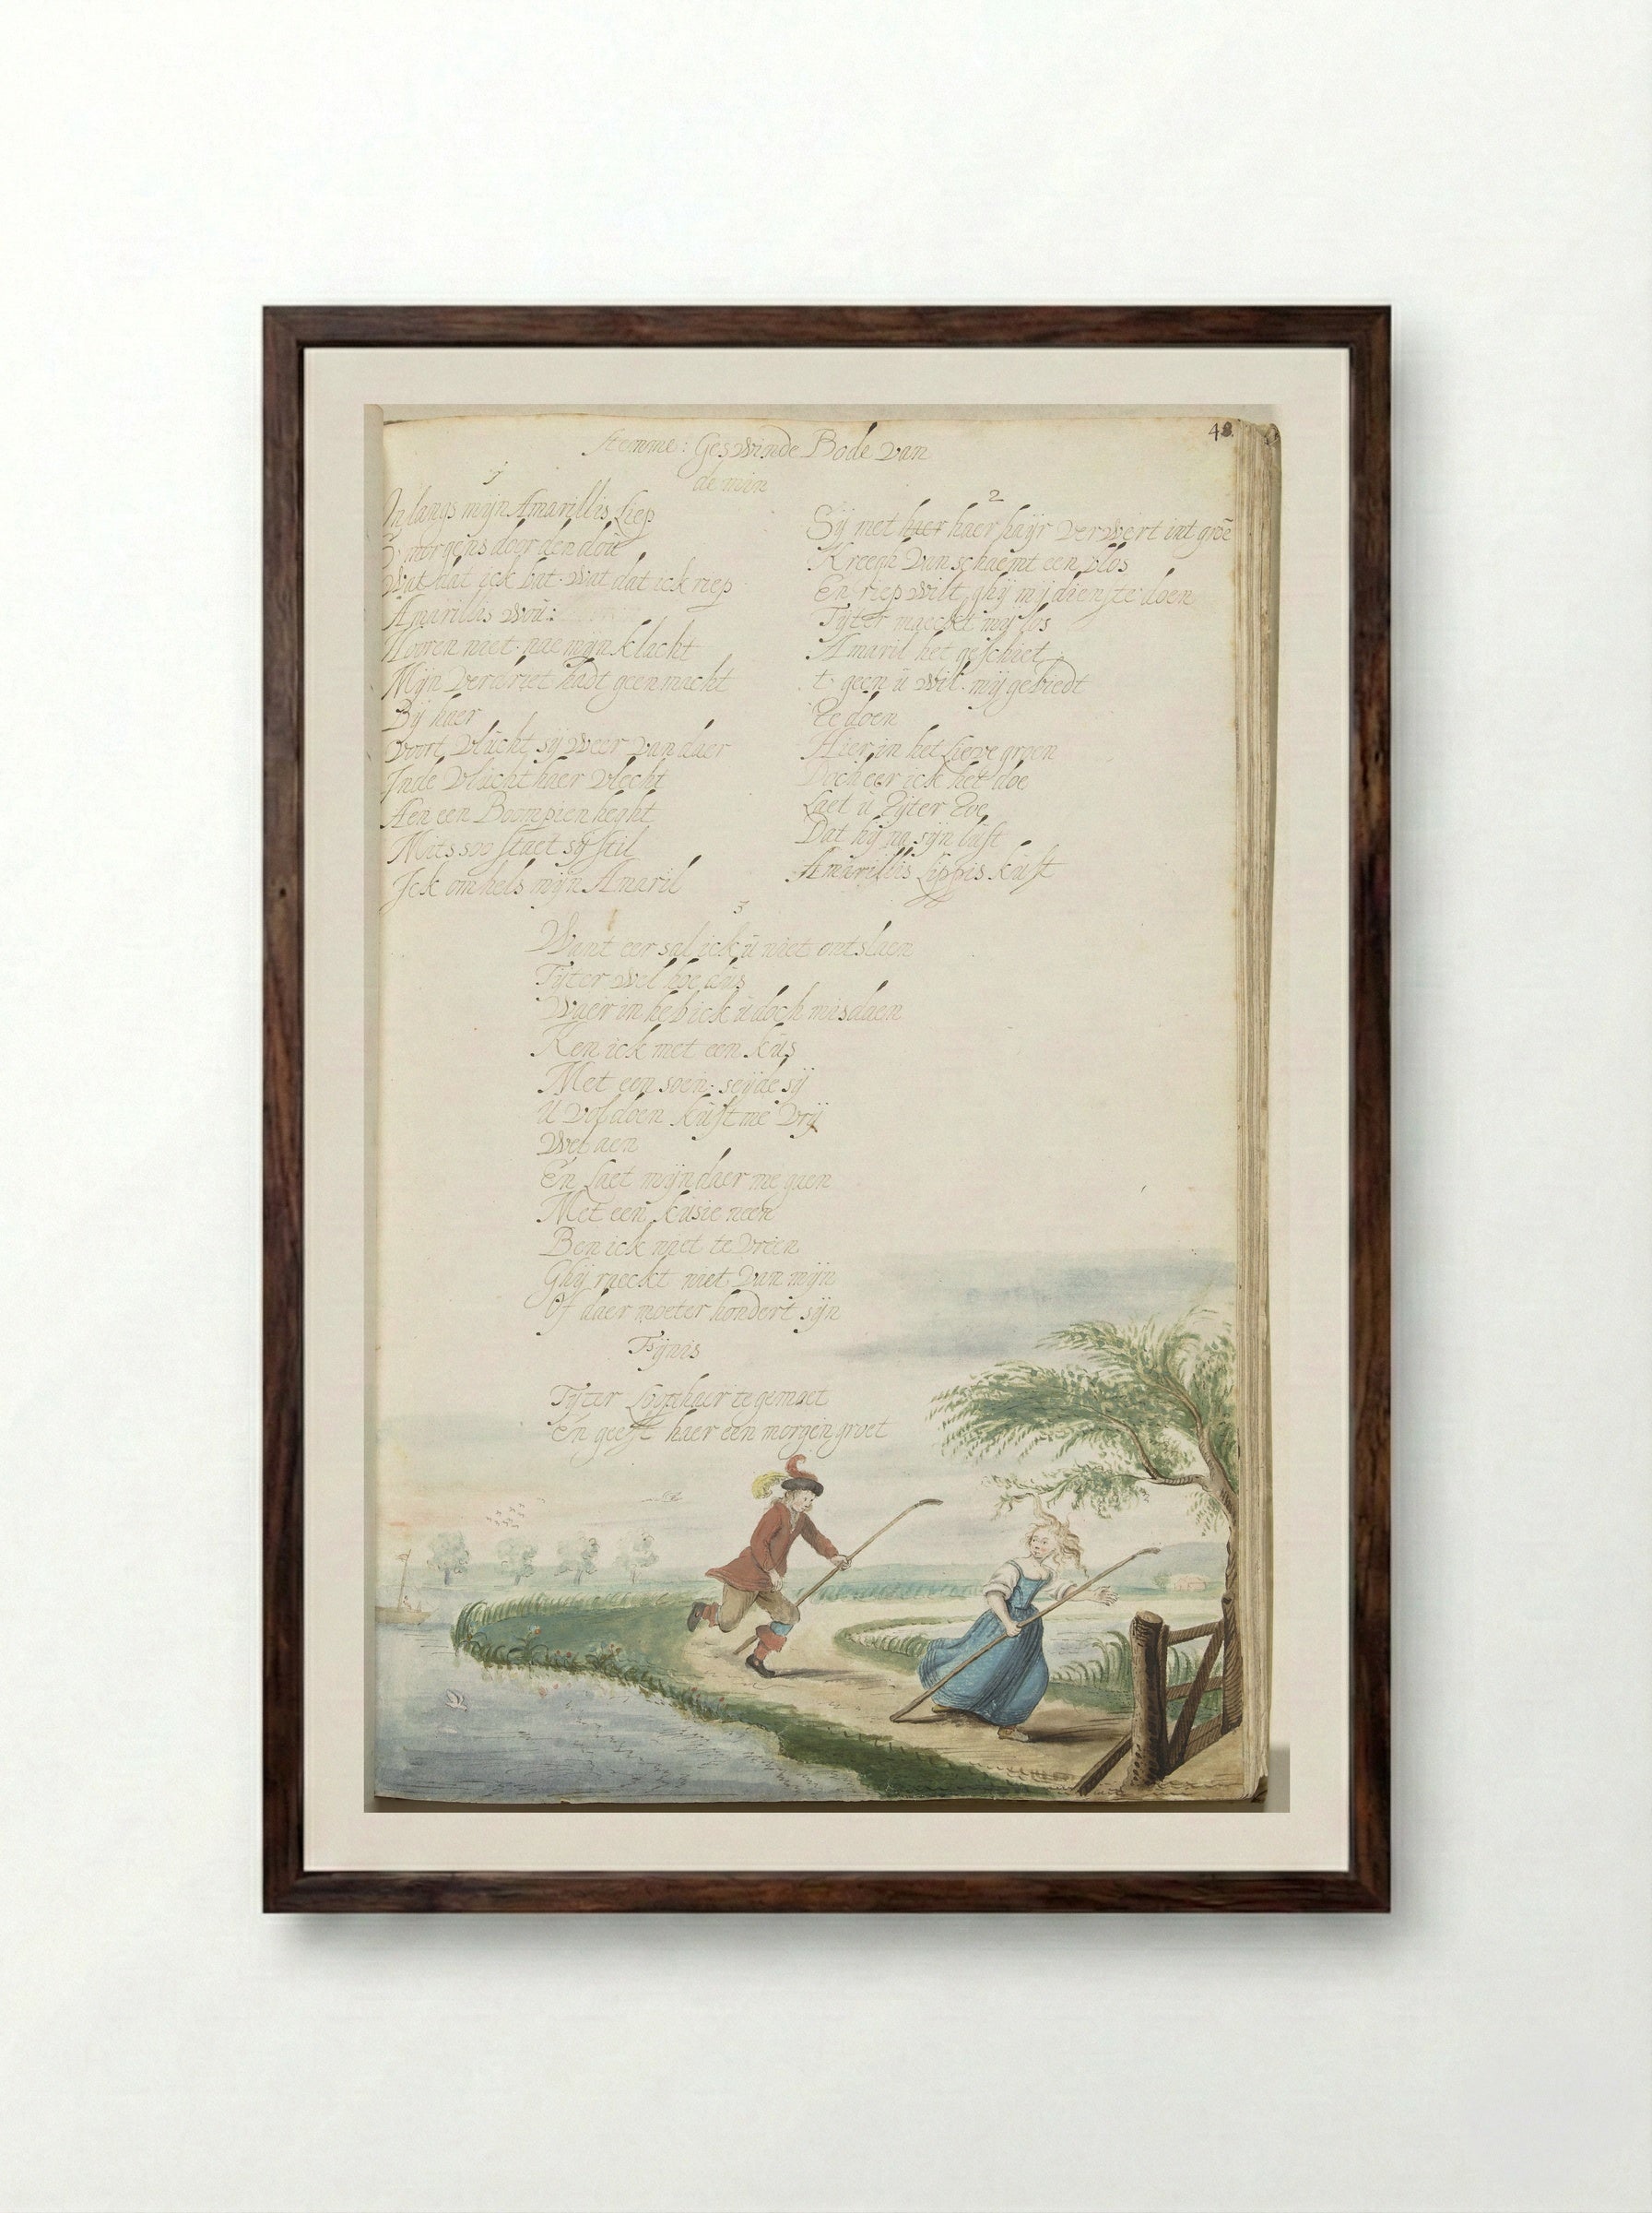 48.
Stemme: Geswinde Bode van
de min
1
Onlangs mijn Amarillis Liep
S'morgens door den dou
Wat dat ick bat. Wat dat ick riep
Amarillis wou:
Hooren niet. nae mijn klacht
Mijn verdriet hadt geen macht
Bij haer
Voort vlucht sij weer van daer
Inde vlucht haer vlecht
Aen een Boompien heght
Mits soo staet sij stil
Ick omhels mijn Amaril
2
Sij met haer haijr verwert int groe
Kreegh van schaemt een blos
En riep wilt ghij mij dienste doen
Tijter maeckt mij los
Amaril het geschiet
t' geen u wil mij gebiedt
Te doen
Hier in het lieve groen
Doch eer ick het doe
Laet u Tijter Toe
Dat hij na sijn lust
Amarillis Lippis kust
3
Want eer sal ick u niet ontslaen
Tijter wel hoe dus
Waer in heb ick u doch misdaen
Ken ick met een kus
Met een soen: seijde sij
U voldoen kust me vrij
Wel aen
En Laet mijn daer me gaen
Met een kusie neen
Ben ick niet te vreen
Ghij raeckt niet van mijn
Of daer moeter hondert sijn
Fijnis
Tijter Loopt haer te gemaet
En geeft haer een morgen groet